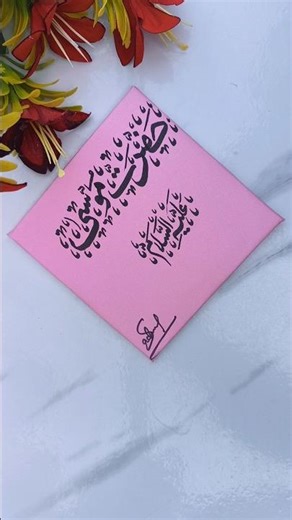 حضرت موسیٰ
علیہ السلام